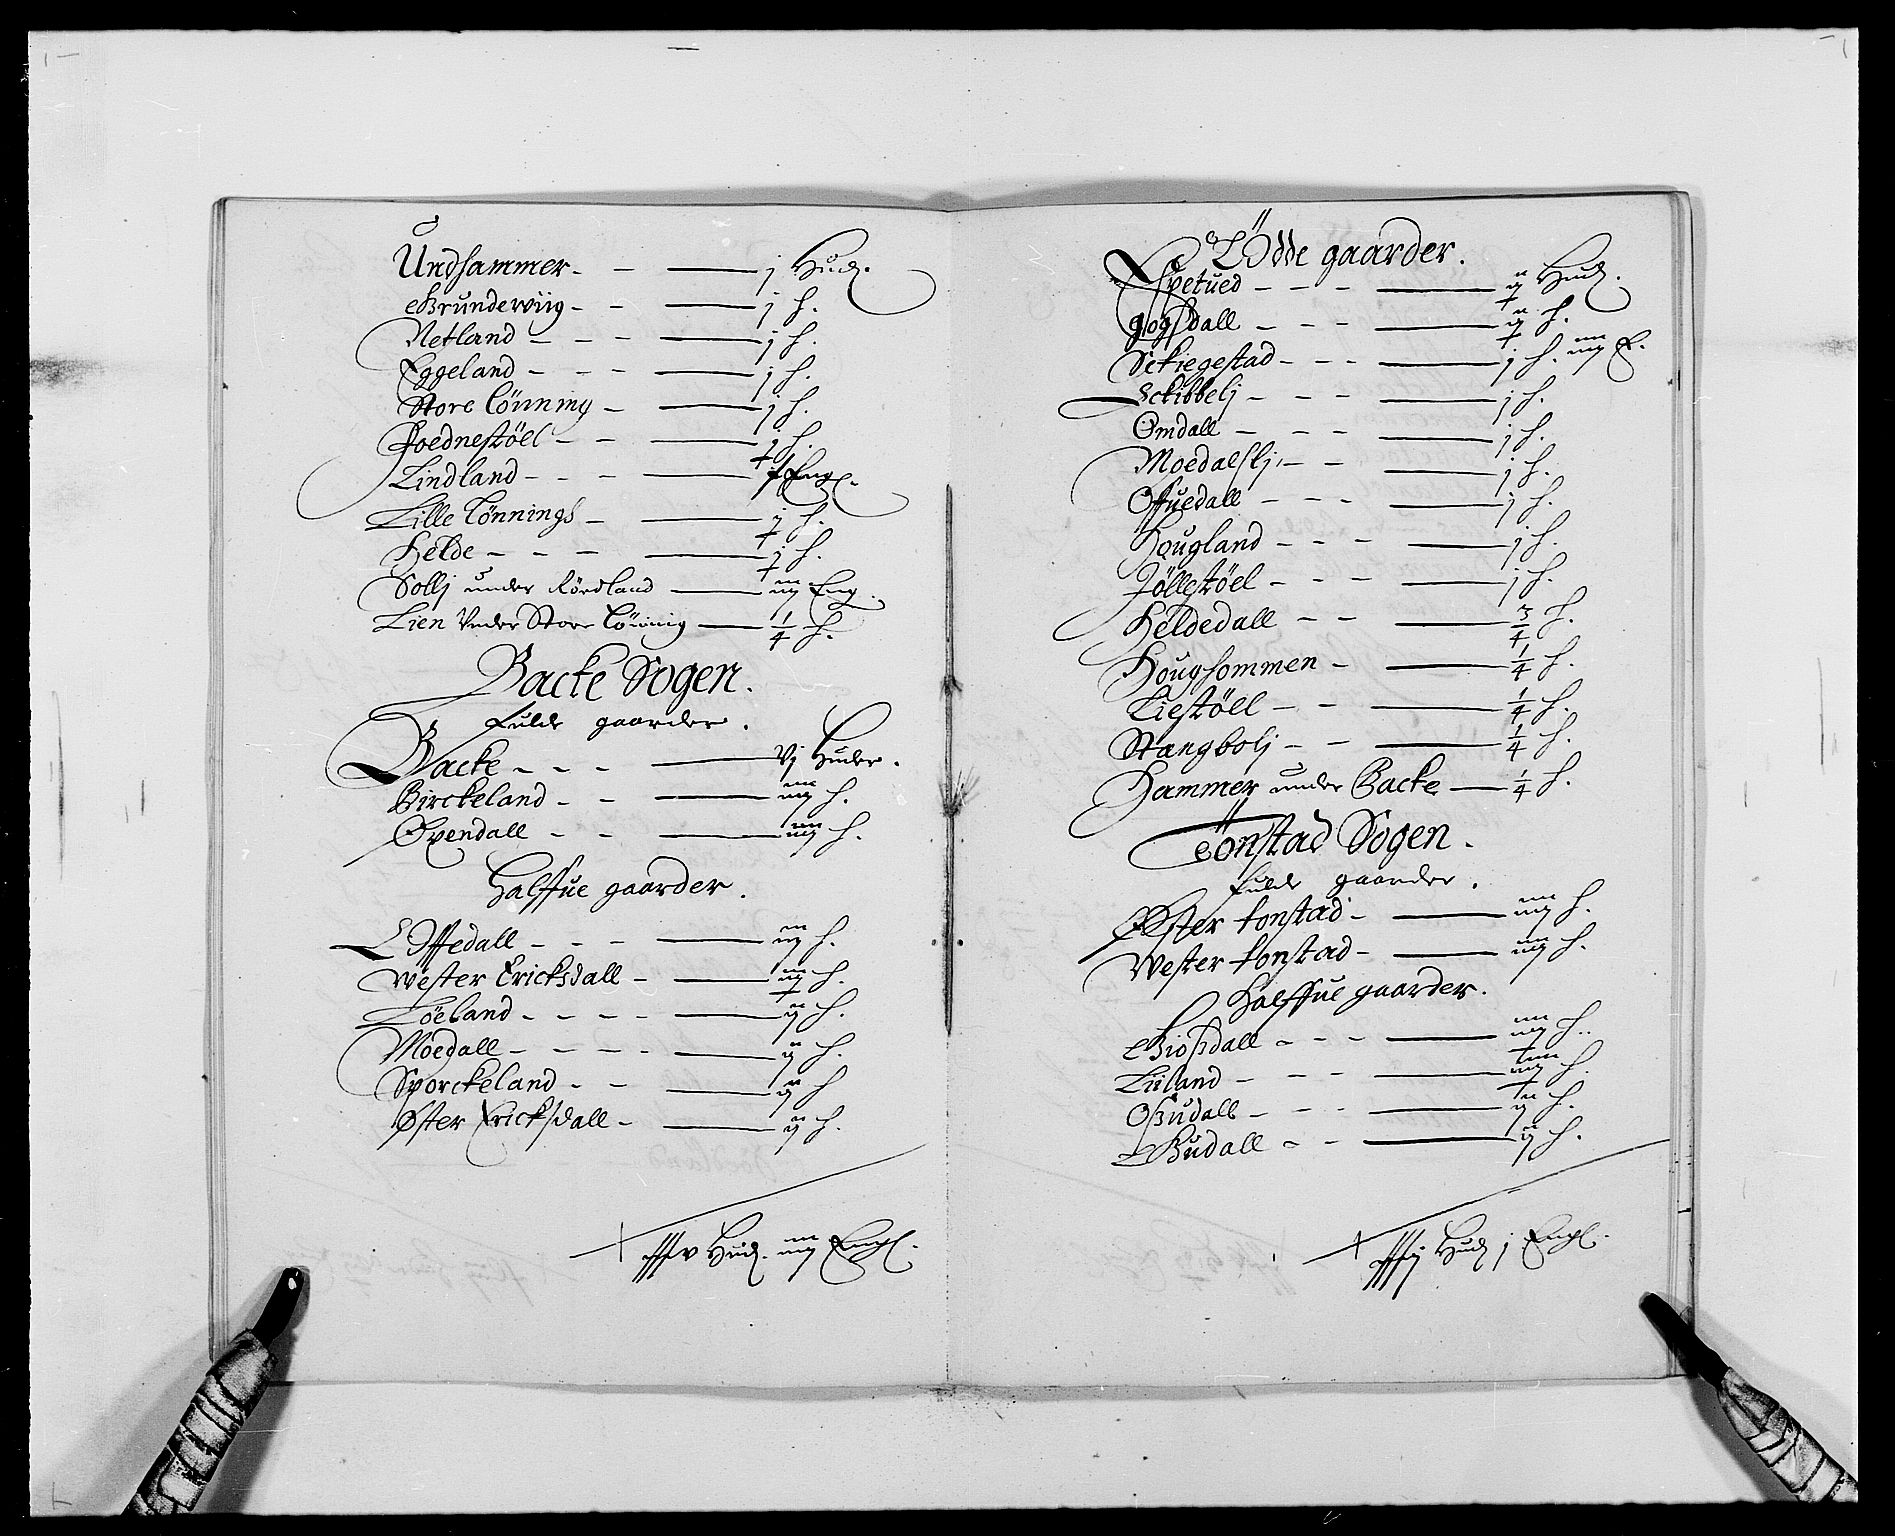 Undhammer - - — j Hud.
Grunderviig - - — j h.
Netland - - - — j h.
Eggeland - - - — j h.
Store Lönning - — j h.
Roednestöel - - — j h.
Lindland - - - — Engl.
Lille Lönnings - — j h.
Helde - - - — j h.
Sollj under Rördland — iij Eng.
Lien Under Store Lönnig — 1/4 h.
Backe Sogen.
Fulde gaarder.
Backe - - - — Vj Huder.
Birckeland - - — iiij h.
Øvendall - - — iiij h.
Halffue gaarder.
Offedall - - - — iij h.
Wester Ericksdall - — iij h.
Löeland - - - - — ij h.
Moedall - - - - — ij h.
Sporckeland - - — ij h
Øster Ericksdall - — ij h.
Hud. iiij Engl.
Ödde gaarder.
Espetued - - - — ij Hud.
gogsdall - - - — ij h.
Sckiegestad - - - — j h. iiij E.
Sckibbelj - - - — j h.
Omdall - - - — j h.
Moedalslj - - — j h.
Offuedall - - - — j h.
Hougland - - - — j h.
Jöllestöel - - - — j h.
Heldedall - - — 3/4 h.
Houghommen - — 1/4 h.
Liestöel - - — 1/4 h.
Stangbolj - - — 1/4 h.
Hammer under Backe — 1/4 h.
Tönstad Sogen.
Fulde gaarder.
Øster tonstad - — iiij h.
Wester tonstad - — iiij h.
Halffue gaarder.
Giosdall - - - — iiij h.
Liiland - - - — iiij h.
Osudall - - - — ij h.
Gudall - - — ij h.
Hud j Engl.